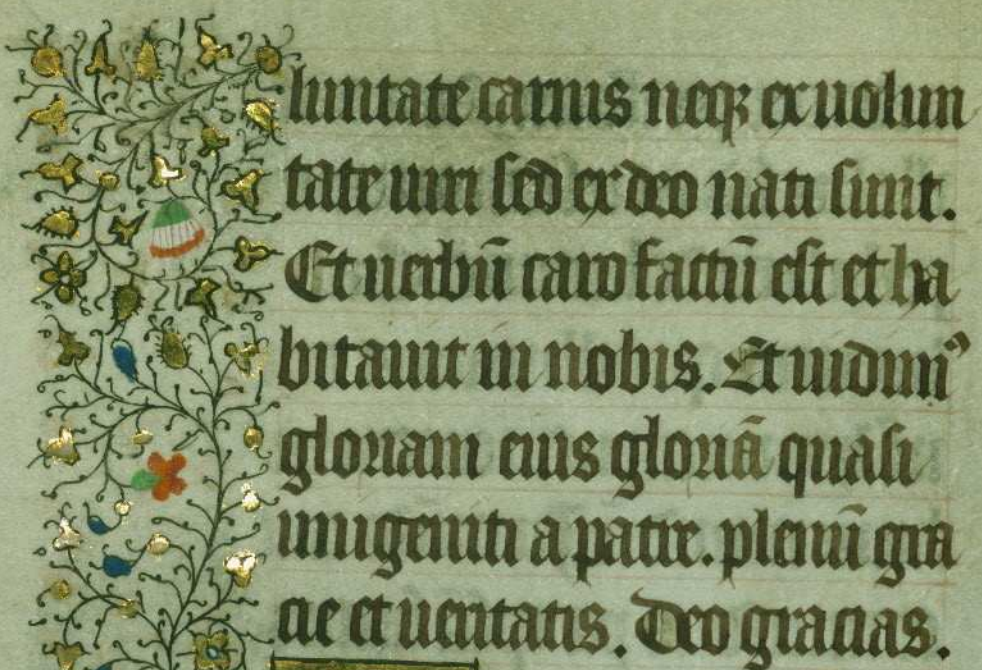 luntate carnis neqꝫ ex uolun
tate uiri sed ex deo nati sunt.
Et uerbū caro factū est et ha
bitauit in nobis. Et uidimꝰ
gloriam eius gloriā quasi
unigeniti a patre. plenū gra
cie et ueritatis. Deo gracias.